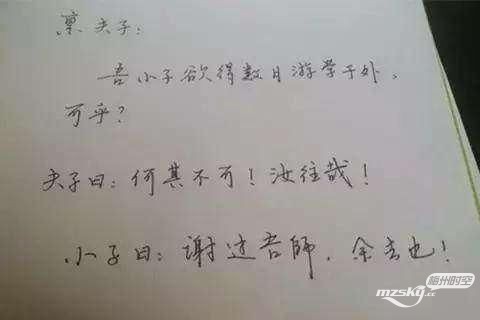 禀夫子：
吾小子欲得数日游学于外，
可乎？
夫子曰：何其不可！汝往哉！
小子曰：谢过吾師，余去也！
梅州时空
mzsky.cc